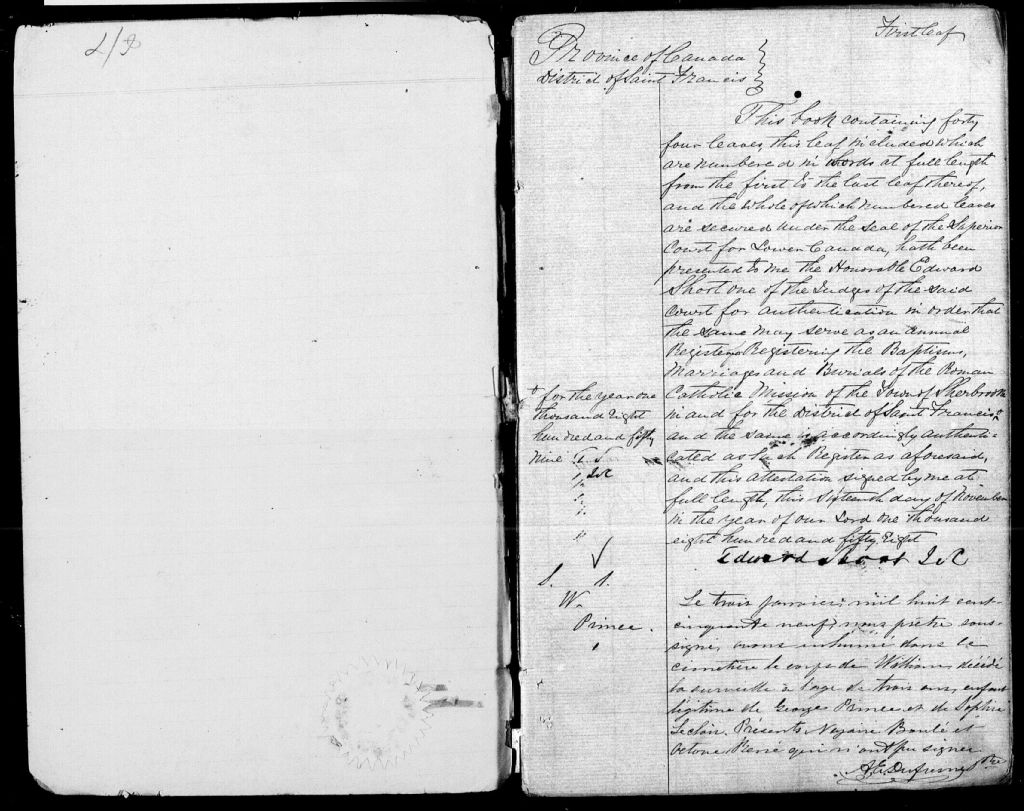 First leaf
Province of Canada
District of Saint Francis
This book containing forty
four leaves, this leaf included which
are numbered in words at full length
from the first to the last leaf thereof,
and the whole of which numbered leaves
are secured under the seal of the Superior
Court for Lower Canada, hath been
presented to me the Honorable Edward
Short one of the Judges of the said
Court for authentication in order that
the same may serve as an Annual
Register Registering the Baptisms,
Marriages and Burials of the Roman
Catholic Mission of the Town of Sherbrooke
in and for the District of Saint Francis +
and the same is accordingly authenti-
cated as such Register as aforesaid,
and this attestation signed by me at
full length, this sixteenth day of November
in the year of our Lord one thousand
eight hundred and fifty Eight
Edward Short
+ for the year one
thousand Eight
hundred and fifty
nine
S.
W.
Prince.
Le trois janvier, mil huit cent-
cinquante neuf, nous prêtre sous-
signé, avons inhumé dans le
cimetière le corps de William, décédé
la surveille à l'age de trois ans, enfant
légitime de George Prince et de Sophie
Leclair. Présents Nazaire Boulé et
Octave René qui n'ont pu signer.
A.E. Dufresne Ptre